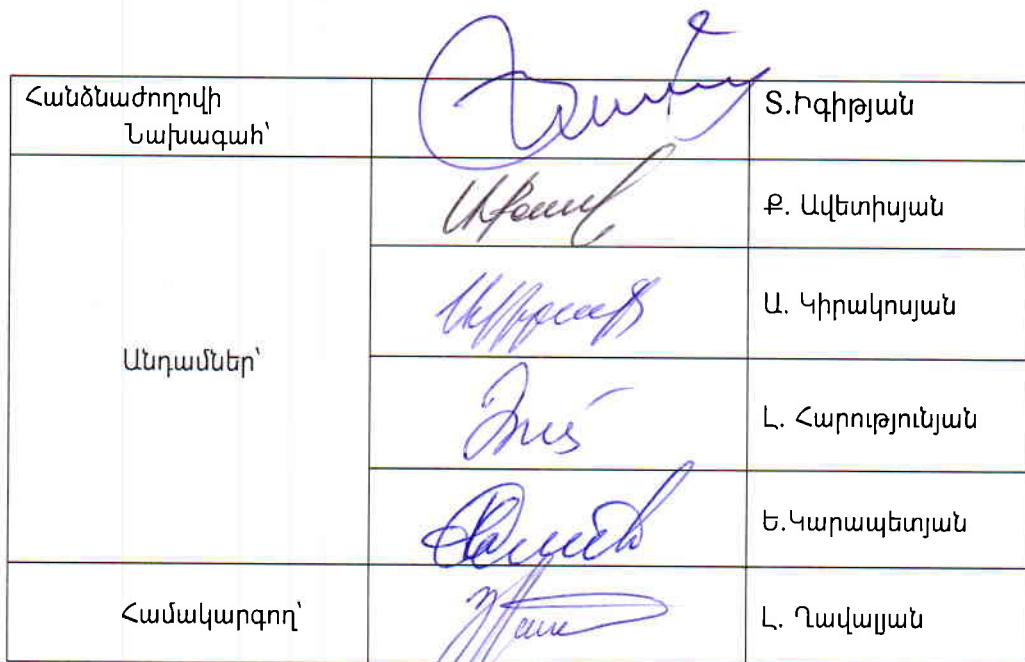 Հանձնաժողովի
Նախագահ՝
Տ.Իգիթյան
Ք. Ավետիսյան
Ա. Կիրակոսյան
Անդամներ՝
Լ. Հարությունյան
Ե.Կարապետյան
Համակարգող՝
Լ. Ղավալյան